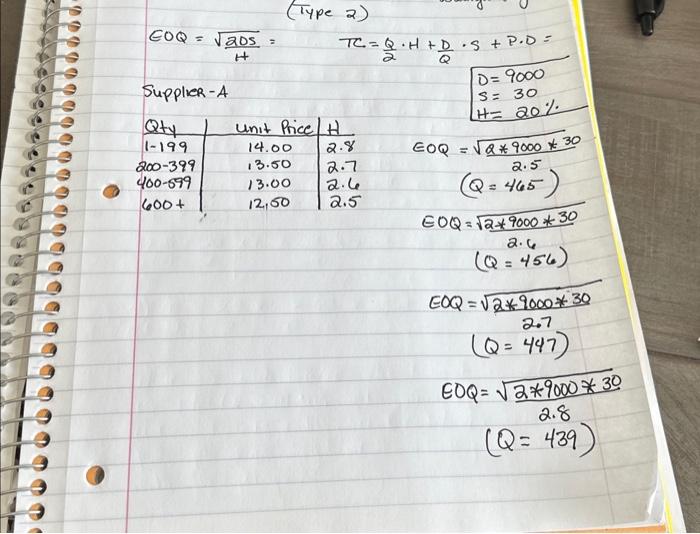 (Type 2)
EOQ = √2DS / H =
TC = Q/2 · H + D/Q · S + P·D =
D = 9000
S = 30
H = 20%
Supplier-A
Qty unit Price H
1-199 14.00 2.8
200-399 13.50 2.7
400-599 13.00 2.6
600+ 12,50 2.5
EOQ = √2*9000*30
2.5
(Q = 465)
EOQ = √2*9000*30
2.6
(Q = 456)
EOQ = √2*9000*30
2.7
(Q = 447)
EOQ = √2*9000*30
2.8
(Q = 439)